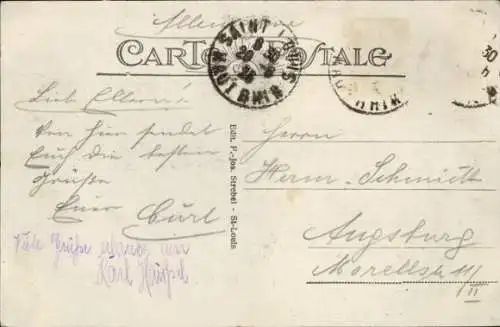 Allemagne
CARTE POSTALE
SAINT-LOUIS
HAUT-RHIN
Lieb Eltern!
Von hier sendet
Euch die besten
Grüße
Euer Curt
Viele Grüße
Karl
Edit. P.-Jos. Strebel - St-Louis
Herrn
Herm. Schmidt
Augsburg
Morellstr. 11/
II